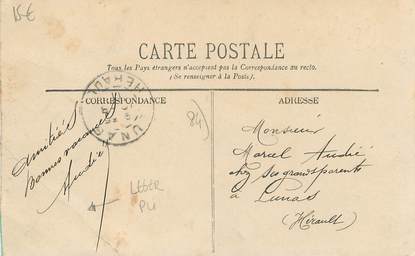 15€
CARTE POSTALE
Tous les Pays étrangers n'acceptent pas la Correspondance au recto.
(Se renseigner à la Poste).
CORRESPONDANCE
ADRESSE
HERAULT
LUNAS
84)
Amitiés
Bonnes vacances
Audié
LEGER
PLI
Monsieur
Marcel Audié
chez ses grands parents
à Lunas
(Hérault)